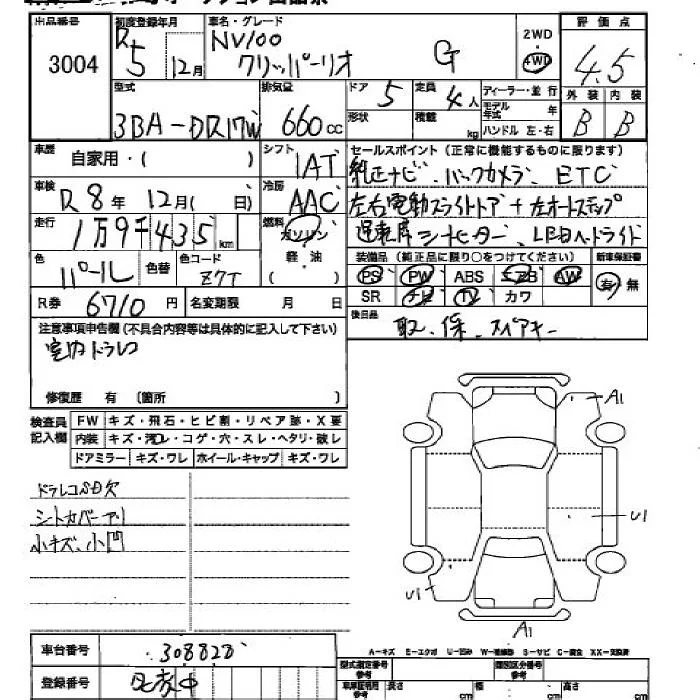 出品番号 初度登録年月 車名・グレード 2WD 評価点
3004 R5 12月 NV100 クリッパーリオ G 4WD 4.5
型式 排気量 ドア 5 定員 4人 ディーラー・並行 外装 内装
3BA-DR17W 660cc 形状 積載 kg モデル年式 年 ハンドル 左・右 B B
車歴 自家用・( ) シフト IAT セールスポイント(正常に機能するものに限ります)
純正ナビ、バックカメラ、ETC
車検 R8年12月( 日) 冷房 AAC 左右電動スライドドア+左オートステップ
走行 1万9千435km 燃料 ガソリン 運転席シートヒーター、LEDヘッドライト
色 パール 色替 色コード Z7T 軽油 ( ) 装備品(純正品に限り○をつけてください) 新車保証書
PS PW ABS エアB AW 有・無
R券 6710円 名変期限 月 日 SR ナビ TV カワ
注意事項申告欄(不具合内容等は具体的に記入して下さい) 後日品 取、保、スペアキー
室内ドラレコ
修復歴 有 〔箇所 〕
検査員記入欄 FW キズ・飛石・ヒビ割・リペア跡・X要
内装 キズ・汚レ・コゲ・穴・スレ・ヘタリ・破レ
ドアミラー キズ・ワレ ホイール・キャップ キズ・ワレ
A1
ドラレコSD欠
シートカバーアリ
小キズ、小凹
U1
U1
A1
A-キズ E-エクボ U-凹み W-補修跡 S-サビ C-腐食 XX-交換済
車台番号 308828
型式指定番号 類別区分番号
登録番号
車庫証明用 長さ cm 幅 cm 高さ cm